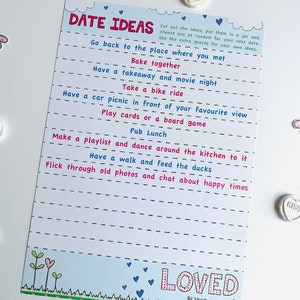 DATE IDEAS
Cut out the ideas, put them in a jar and
choose one at random for your next date.
Use the extra spaces for your own ideas.
Go back to the place where you met
Bake together
Have a takeaway and movie night
Take a bike ride
Have a car picnic in front of your favourite view
Play cards or a board game
Pub Lunch
Make a playlist and dance around the kitchen to it
Have a walk and feed the ducks
Flick through old photos and chat about happy times
LOVED